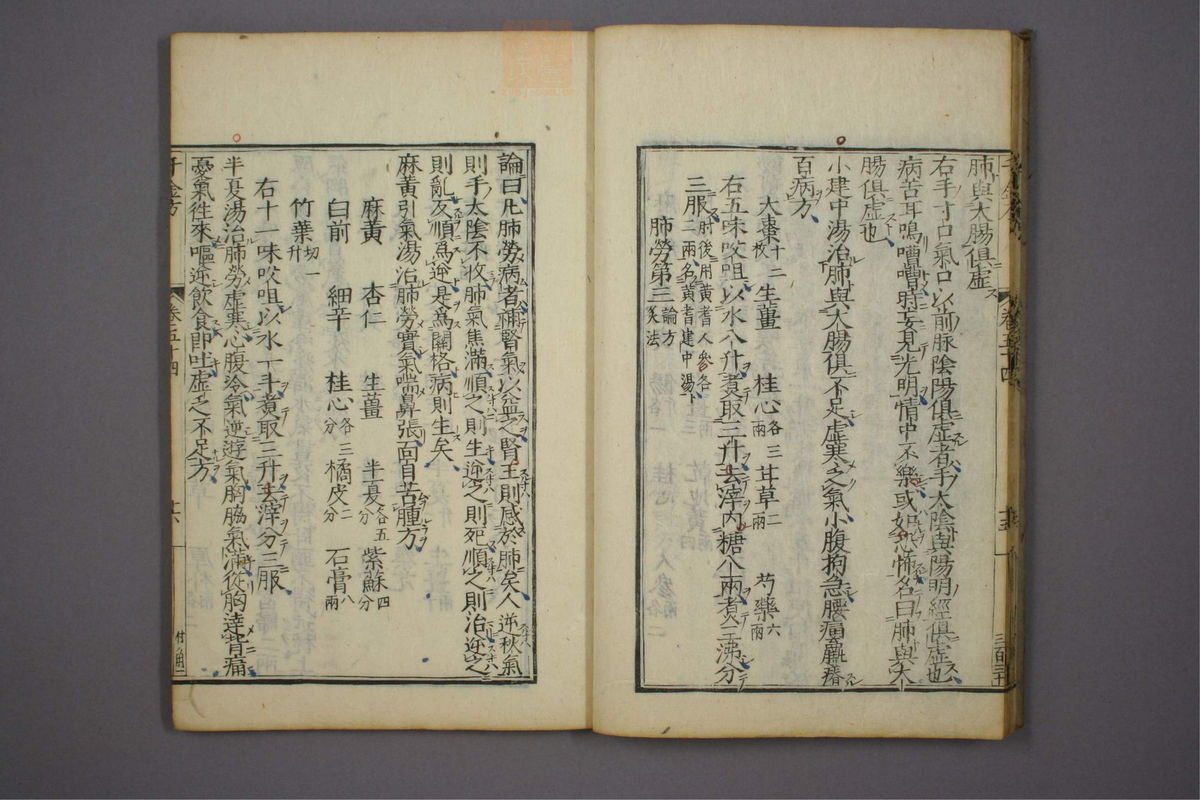 肺與大腸俱虛
右手寸口氣口以前脉陰陽俱虛者手太陰與陽明經俱虛也
病苦耳鳴嘈嘈時妄見光明情中不樂或如恐怖名曰肺與大
腸俱虛也
小建中湯治肺與大腸俱不足虛寒乏氣小腹拘急腰痛羸瘠
百病方
大棗十二枚 生薑 桂心各三兩 甘草二兩 芍藥六兩
右五味㕮咀以水八升煮取三升去滓內糖八兩煮三沸分
三服肘後用黃耆人參各二兩名黃耆建中湯
肺勞第三論方灸法
論曰凡肺勞病者補腎氣以益之腎王則感於肺矣人逆秋氣
則手太陰不收肺氣焦滿順之則生逆之則死順之則治逆之
則亂反順爲逆是爲關格病則生矣
麻黃引氣湯治肺勞實氣喘鼻張面目苦腫方
麻黃 杏仁 生薑 半夏各五分 紫蘇四分
白前 細辛 桂心各三分 橘皮二分 石膏八兩
竹葉切一升
右十一味㕮咀以水一斗煮取三升去滓分三服
半夏湯治肺勞虛寒心腹冷氣逆遊氣胸脇氣滿從胸達背痛
憂氣徃來嘔逆飲食即吐虛乏不足方
千金方 卷五十四 十六